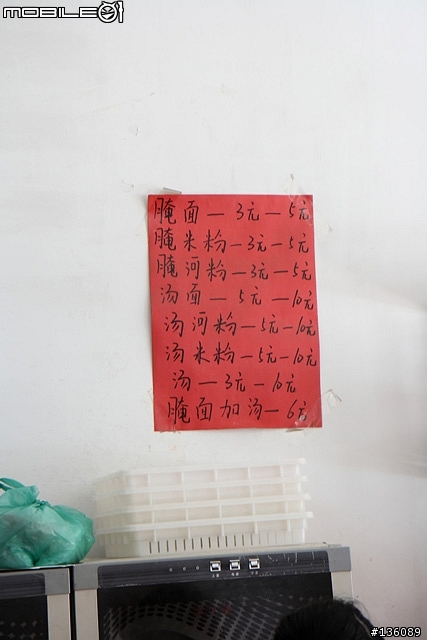 MOBILE01
腌面—3元—5元
腌米粉—3元—5元
腌河粉—3元—5元
汤面—5元—10元
汤河粉—5元—10元
汤米粉—5元—10元
汤—3元—10元
腌面加汤—6元
#136089